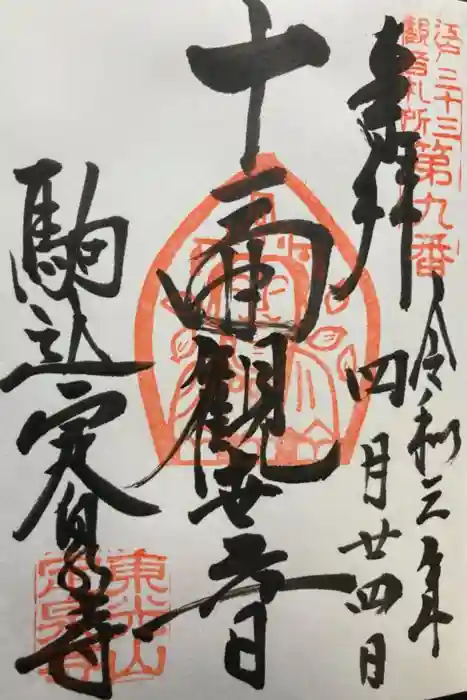 江戸三十三
觀音札所
第九番
奉拝
令和三年
四月廿四日
十一面觀世音
駒込定泉寺
東光山
定泉寺